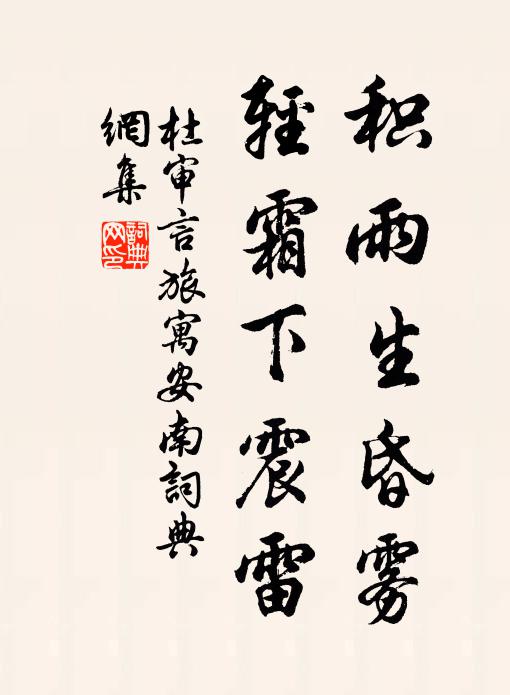 积雨生昏雾
輕霜下震雷
杜审言旅寓安南詞典
網集
詞典
网印